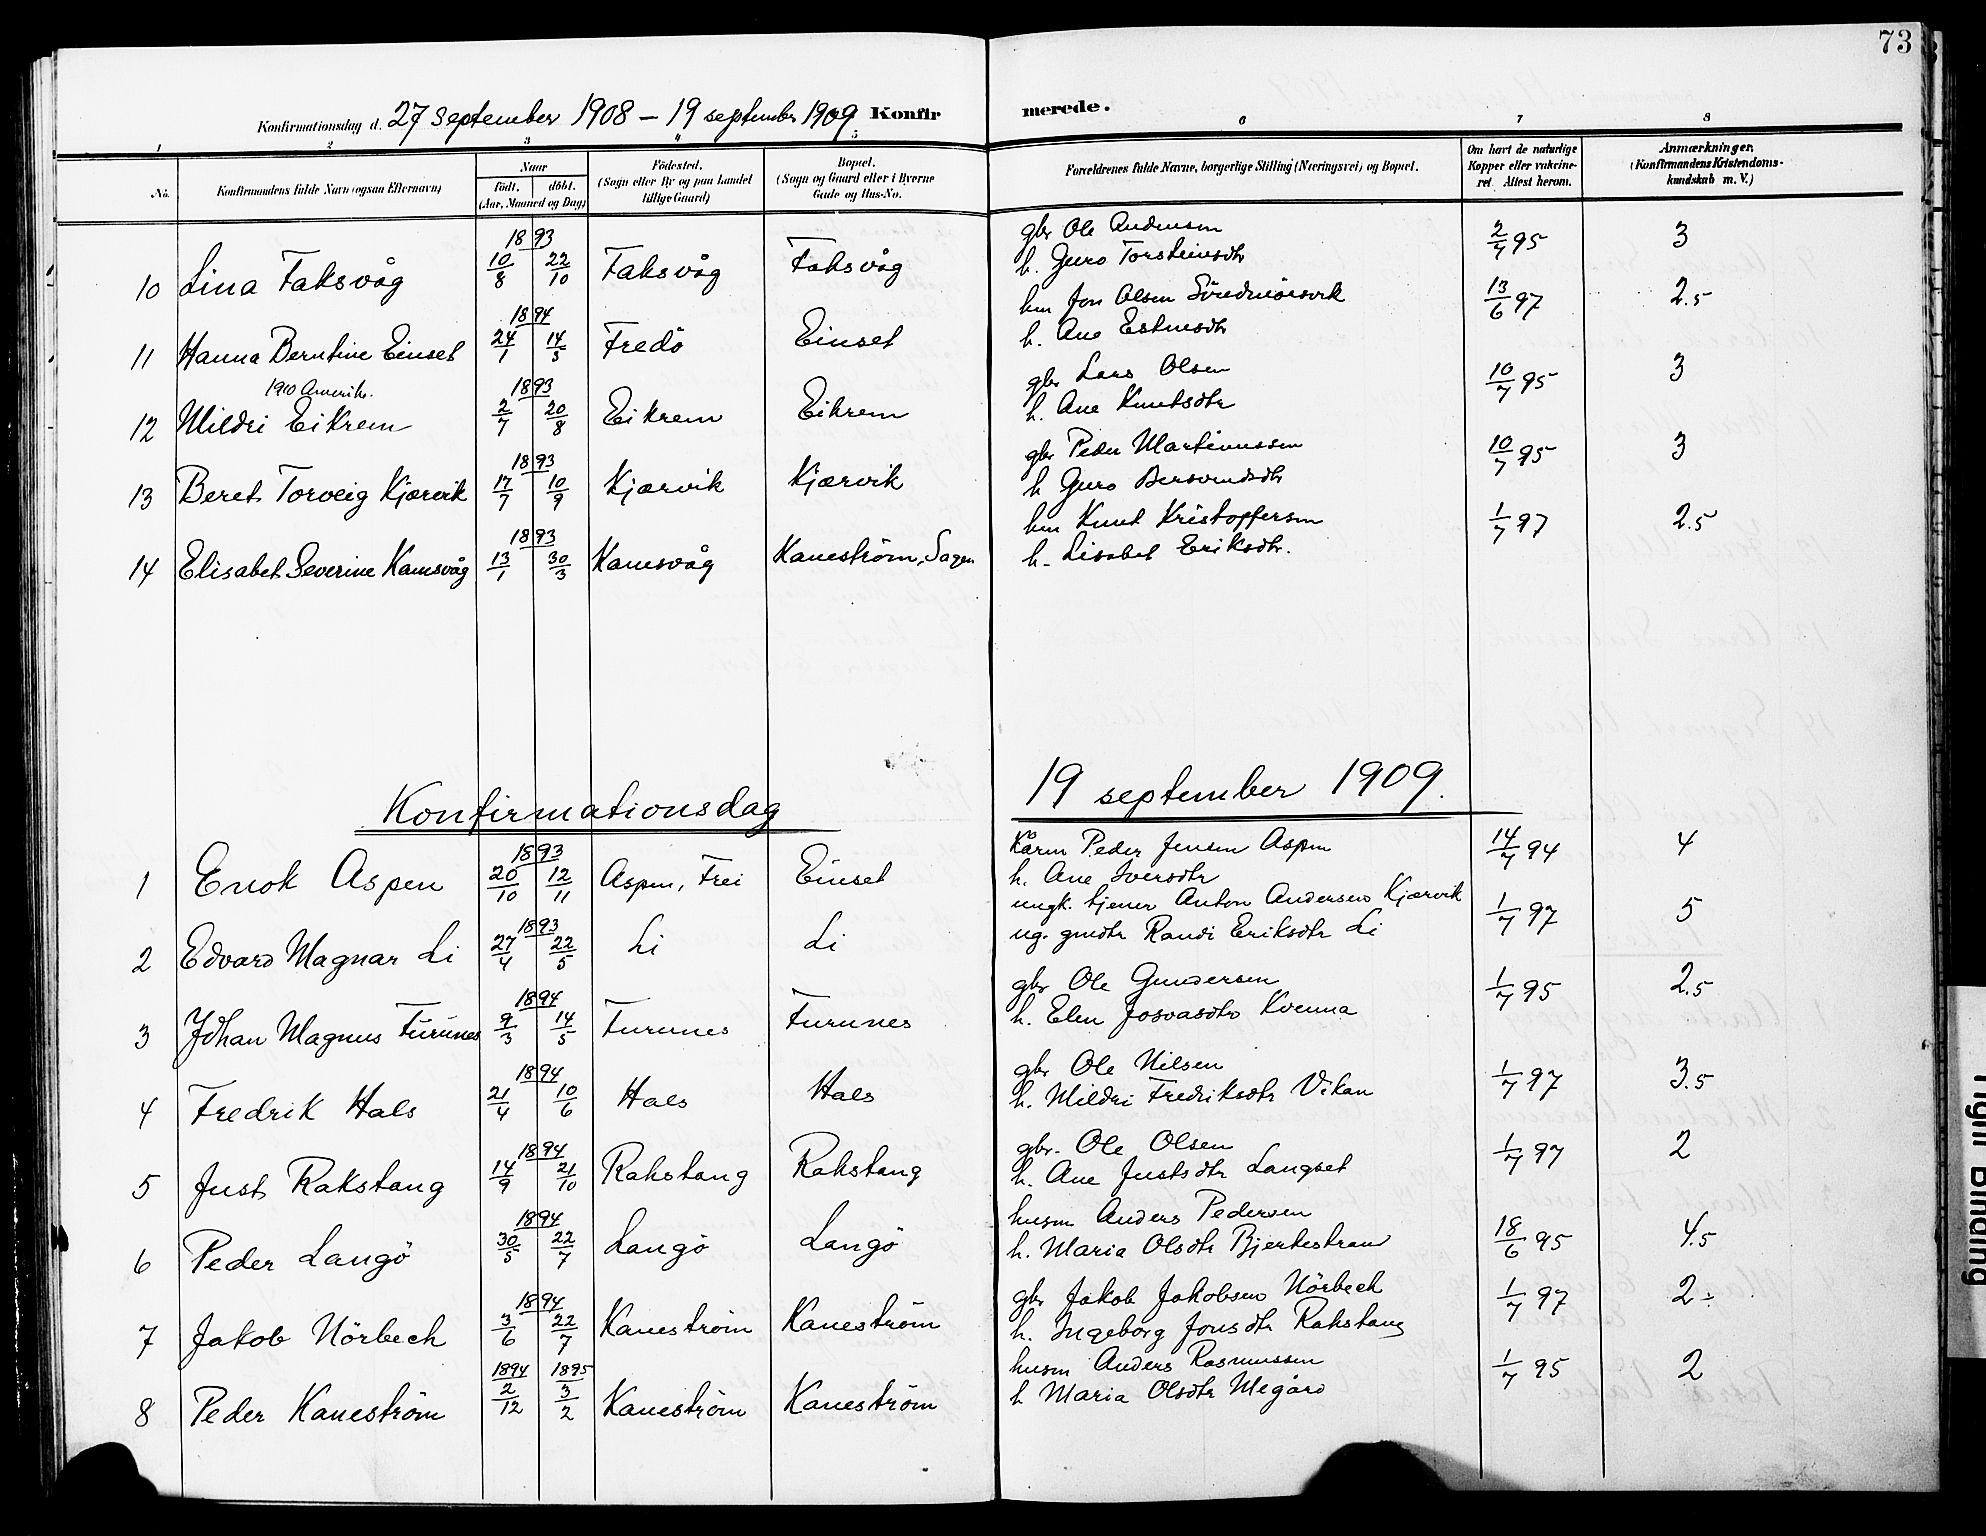 73
Konfirmationsdag d. 27 september 1908 – 19 september 1909 Konfirmerede.
1 2 3 4 5 6 7 8
No. Konfirmandens fulde Navn (ogsaa Efternavn) Naar født. døbt. (Aar, Maaned og Dag) Fødested. (Sogn eller By og paa Landet tillige Gaard) Bopæl. (Sogn og Gaard eller i Byerne Gade og Hus-No. Forældrenes fulde Navne, borgerlige Stilling (Næringsvei) og Bopæl. Om havt de naturlige Kopper eller vakcineret. Attest herom. Anmærkninger. (Konfirmandens Kristendomskundskab m. V.)
10 Lina Faksvåg 1893 10/8 22/10 Faksvåg Faksvåg gbr Ole Andersen 2/7 95 3
h. Guro Torsteinsdtr
11 Hanna Berntine Einset 1894 24/1 14/3 Fredö Einset hm Jon Olsen 13/6 97 2.5
h. Ane Estensdtr
1910 Amerika.
12 Mildri Eikrem 1893 2/7 20/8 Eikrem Eikrem gbr Lars Olsen 10/7 95 3
h. Ane Knutsdtr
13 Beret Torveig Kjærvik 1893 17/7 10/9 Kjærvik Kjærvik gbr Peder Martinussen 10/7 95 3
h Guro Bersvendsdtr
14 Elisabet Severine Kamsvåg 1893 13/1 30/3 Kamsvåg Kaneström, Sagen hm Knut Kristoffersen 1/7 97 2.5
h. Lisabet Eriksdtr.
Konfirmationsdag 19 september 1909.
1 Enok Aspen 1893 20/10 12/11 Aspen, Frei Einset Kårm Peder Jensen Aspen 14/7 94 4
h. Ane Iversdtr
2 Edvard Magnar Li 1893 27/4 22/5 Li Li ungk. tjener Anton Andersen Kjærvik 1/7 97 5
ug. gmdtr Randi Eriksdtr Li
3 Johan Magnus Furunes 1894 9/3 14/5 Furunes Furunes gbr Ole Gundersen 1/7 95 2.5
h. Elen Josvasdtr Kvenna
4 Fredrik Hals 1894 21/4 10/6 Hals Hals gbr Ole Nilsen 1/7 97 3.5
h. Mildri Fredriksdtr Vikan
5 Just Rakstang 1894 14/9 21/10 Rakstang Rakstang gbr. Ole Olsen 1/7 97 2
h. Ane Justsdtr Langset
6 Peder Langö 1894 30/5 22/7 Langö Langö husm Anders Pedersen 18/6 95 4.5
h. Maria Olsdtr Bjerkestran
7 Jakob Nörbech 1894 3/6 22/7 Kaneström Kaneström gbr Jakob Jakobsen Nörbech 1/7 97 2 ÷
h. Ingeborg Jonsdtr Rakstang
8 Peder Kaneström 1894 2/12 1895 3/2 Kaneström Kaneström husm Anders Rasmussen 1/7 95 2
h Maria Olsdtr Megård
Tight Binding